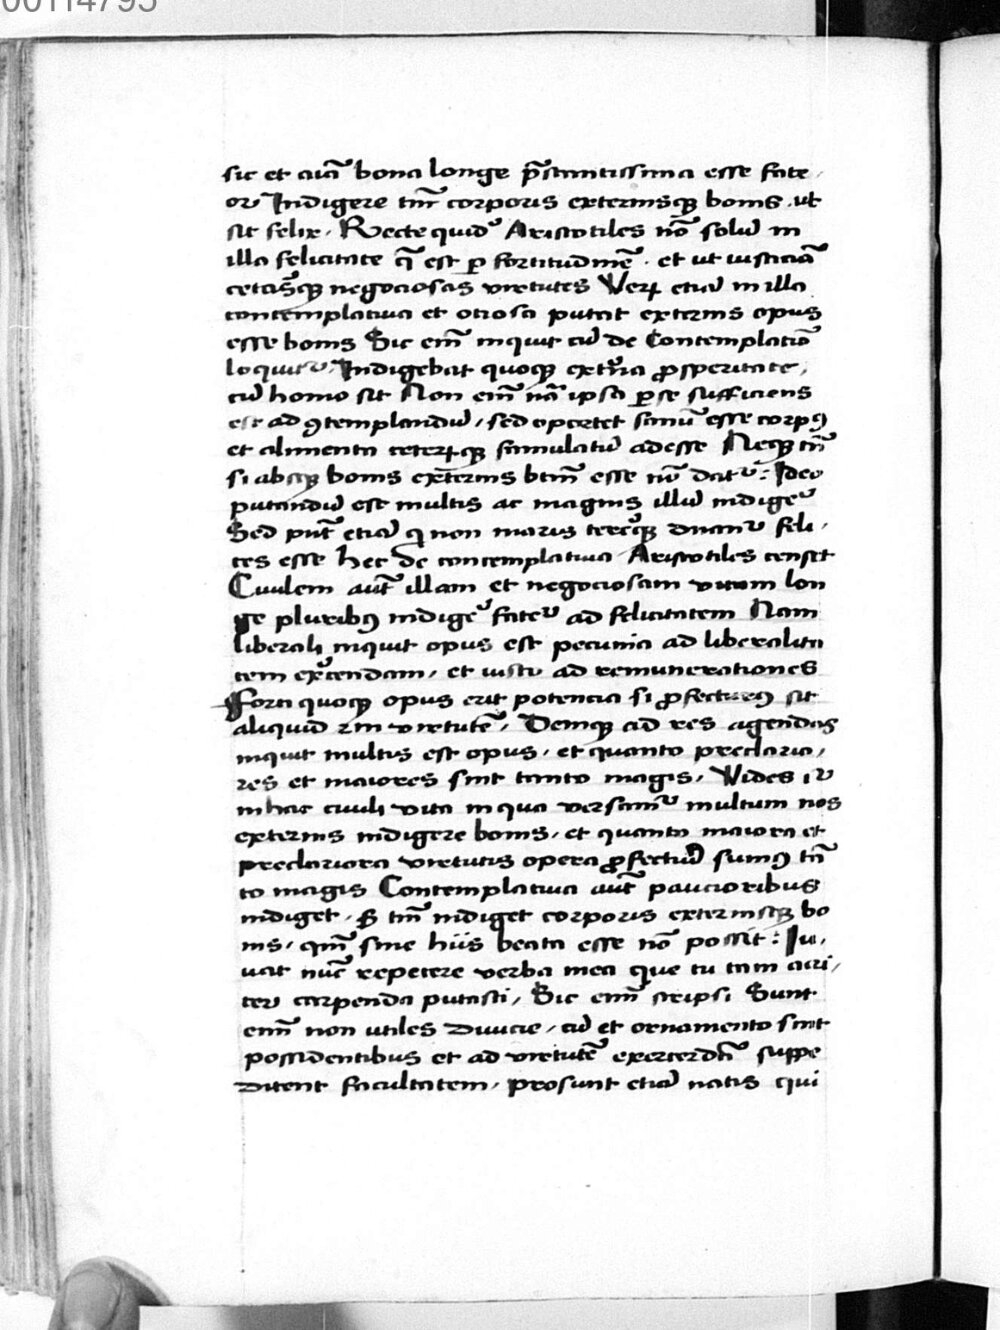 00114795
sic et aīā bona longe p̄stantissima esse fate,
or Indigere tm̄ corporis externisqꝫ bonis. ut
sit felix. Recte quid᷒ Aristotiles nō solū in
illa felicitate q̄ est ꝑ fortitudinē. et ut iusticiā
ceterasqꝫ negociosas virtutes Veꝝ etiā in illa
contemplatiua et otiosa putat externis opus
esse bonis Sic em̄ inquit cū de Contemplatiō
loquitᷣ. Indigebat quoqꝫext̓na ꝓsperitate,
cū homo sit Non em̄ nā ipsa ꝑ se sufficiens
est ad ꝯtemplandū, sed oportet sanū esse corpꝰ
et alimenta ceteꝝqꝫ famulatū adesse Neqꝫ tn̄
si absqꝫ bonis externis btm̄ esse nō datᷣ: Ideo
putandū est multis ac magnis illū indige᷒
Sed pn̄t etiā q̄ non maris terreqꝫ dnantᷣ feli,
ces esse hec de contemplatiua Aristotiles censet
Ciuilem aūt illam et negociosam vitam lon
ge pluribꝰ indige᷒ fatetᷣ ad felicitatem Nam
liberali inquit opus est pecunia ad liberalita
tem ex̓cendam, et iusto ad remunerationes
Forti quoqꝫ opus erit potencia si ꝓfecturꝰ sit
aliquid 2m virtutē, Deniqꝫ ad res agendas
inquit multis est opus, et quanto preclario,
res et maiores sint tanto magis, Vides iᷣ
in hac ciuili vita in qua versamᷣ multum nos
externis indigere bonis, et quanto maiora et
preclariora virtutis opera ꝓfectuꝛi sumꝰ tā
to magis Contemplatiua aūt paucioribus
indiget, Sꝫ tm̄ indiget corporis externisqꝫ bo
nis, qm̄ sine hiis beata esse nō possit: Iu,
uat nūc repetere verba mea que tu tam acri,
ter carpenda putasti, Sic em̄ scripsi Sunt
em̄ non utiles Diuicie, cū et ornamento sint
possidentibus et ad virtutē exercendā suppe
Ditent facultatem, prosunt etiā natis qui